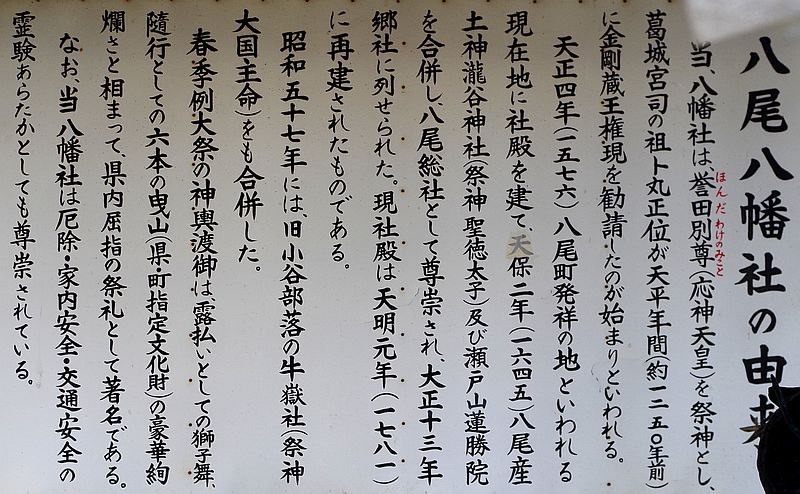 八尾八幡社の由来
当、八幡社は誉田別尊(応神天皇)を祭神とし、
ほんだわけのみこと
葛城宮司の祖卜丸正位が天平年間(約一二五〇年前)
に金剛蔵王権現を勧請したのが始まりといわれる。
天正四年(一五七六)八尾町発祥の地といわれる
現在地に社殿を建て、天保二年(一六四五)八尾産
土神瀧谷神社(祭神聖徳太子)及び瀬戸山蓮勝院
を合併し、八尾総社として尊崇され、大正十三年
郷社に列せられた。現社殿は天明元年(一七八一)
に再建されたものである。
昭和五十七年には、旧小谷部落の牛嶽社(祭神
大国主命)をも合併した。
春季例大祭の神輿渡御は、露払いとしての獅子舞、
随行としての六本の曳山(県・町指定文化財)の豪華絢
爛さと相まって、県内屈指の祭礼として著名である。
なお、当八幡社は厄除・家内安全・交通安全の
霊験あらたかとしても尊崇されている。